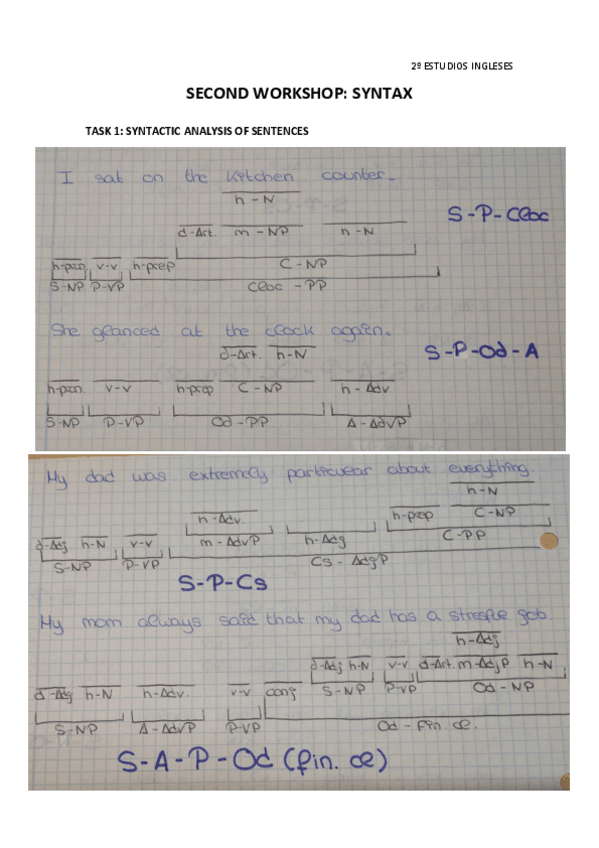 2º ESTUDIOS INGLESES
SECOND WORKSHOP: SYNTAX
TASK 1: SYNTACTIC ANALYSIS OF SENTENCES
I sat on the kitchen counter.
h-N
S-P-Cloc
d-Art. m-NP h-N
h-pron v-v h-prep C-NP
S-NP P-VP Cloc-PP
She glanced at the clock again.
d-Art. h-N
S-P-Od-A
h-pron. v-v h-prep C-NP h-Adv
S-NP P-VP Od-PP A-AdvP
My dad was extremely particular about everything.
h-N
h-Adv. h-prep C-NP
d-Adj h-N v-v m-AdvP h-Adj C-PP
S-NP P-VP Cs-AdjP
S-P-Cs
My mom always said that my dad has a stresful job.
h-Adj
d-Adj h-N v-v d-Art. m-AdjP h-N
d-Adj h-N h-Adv. v-v conj S-NP P-VP Od-NP
S-NP A-AdvP P-VP Od-fin. cl.
S-A-P-Od (fin. cl)